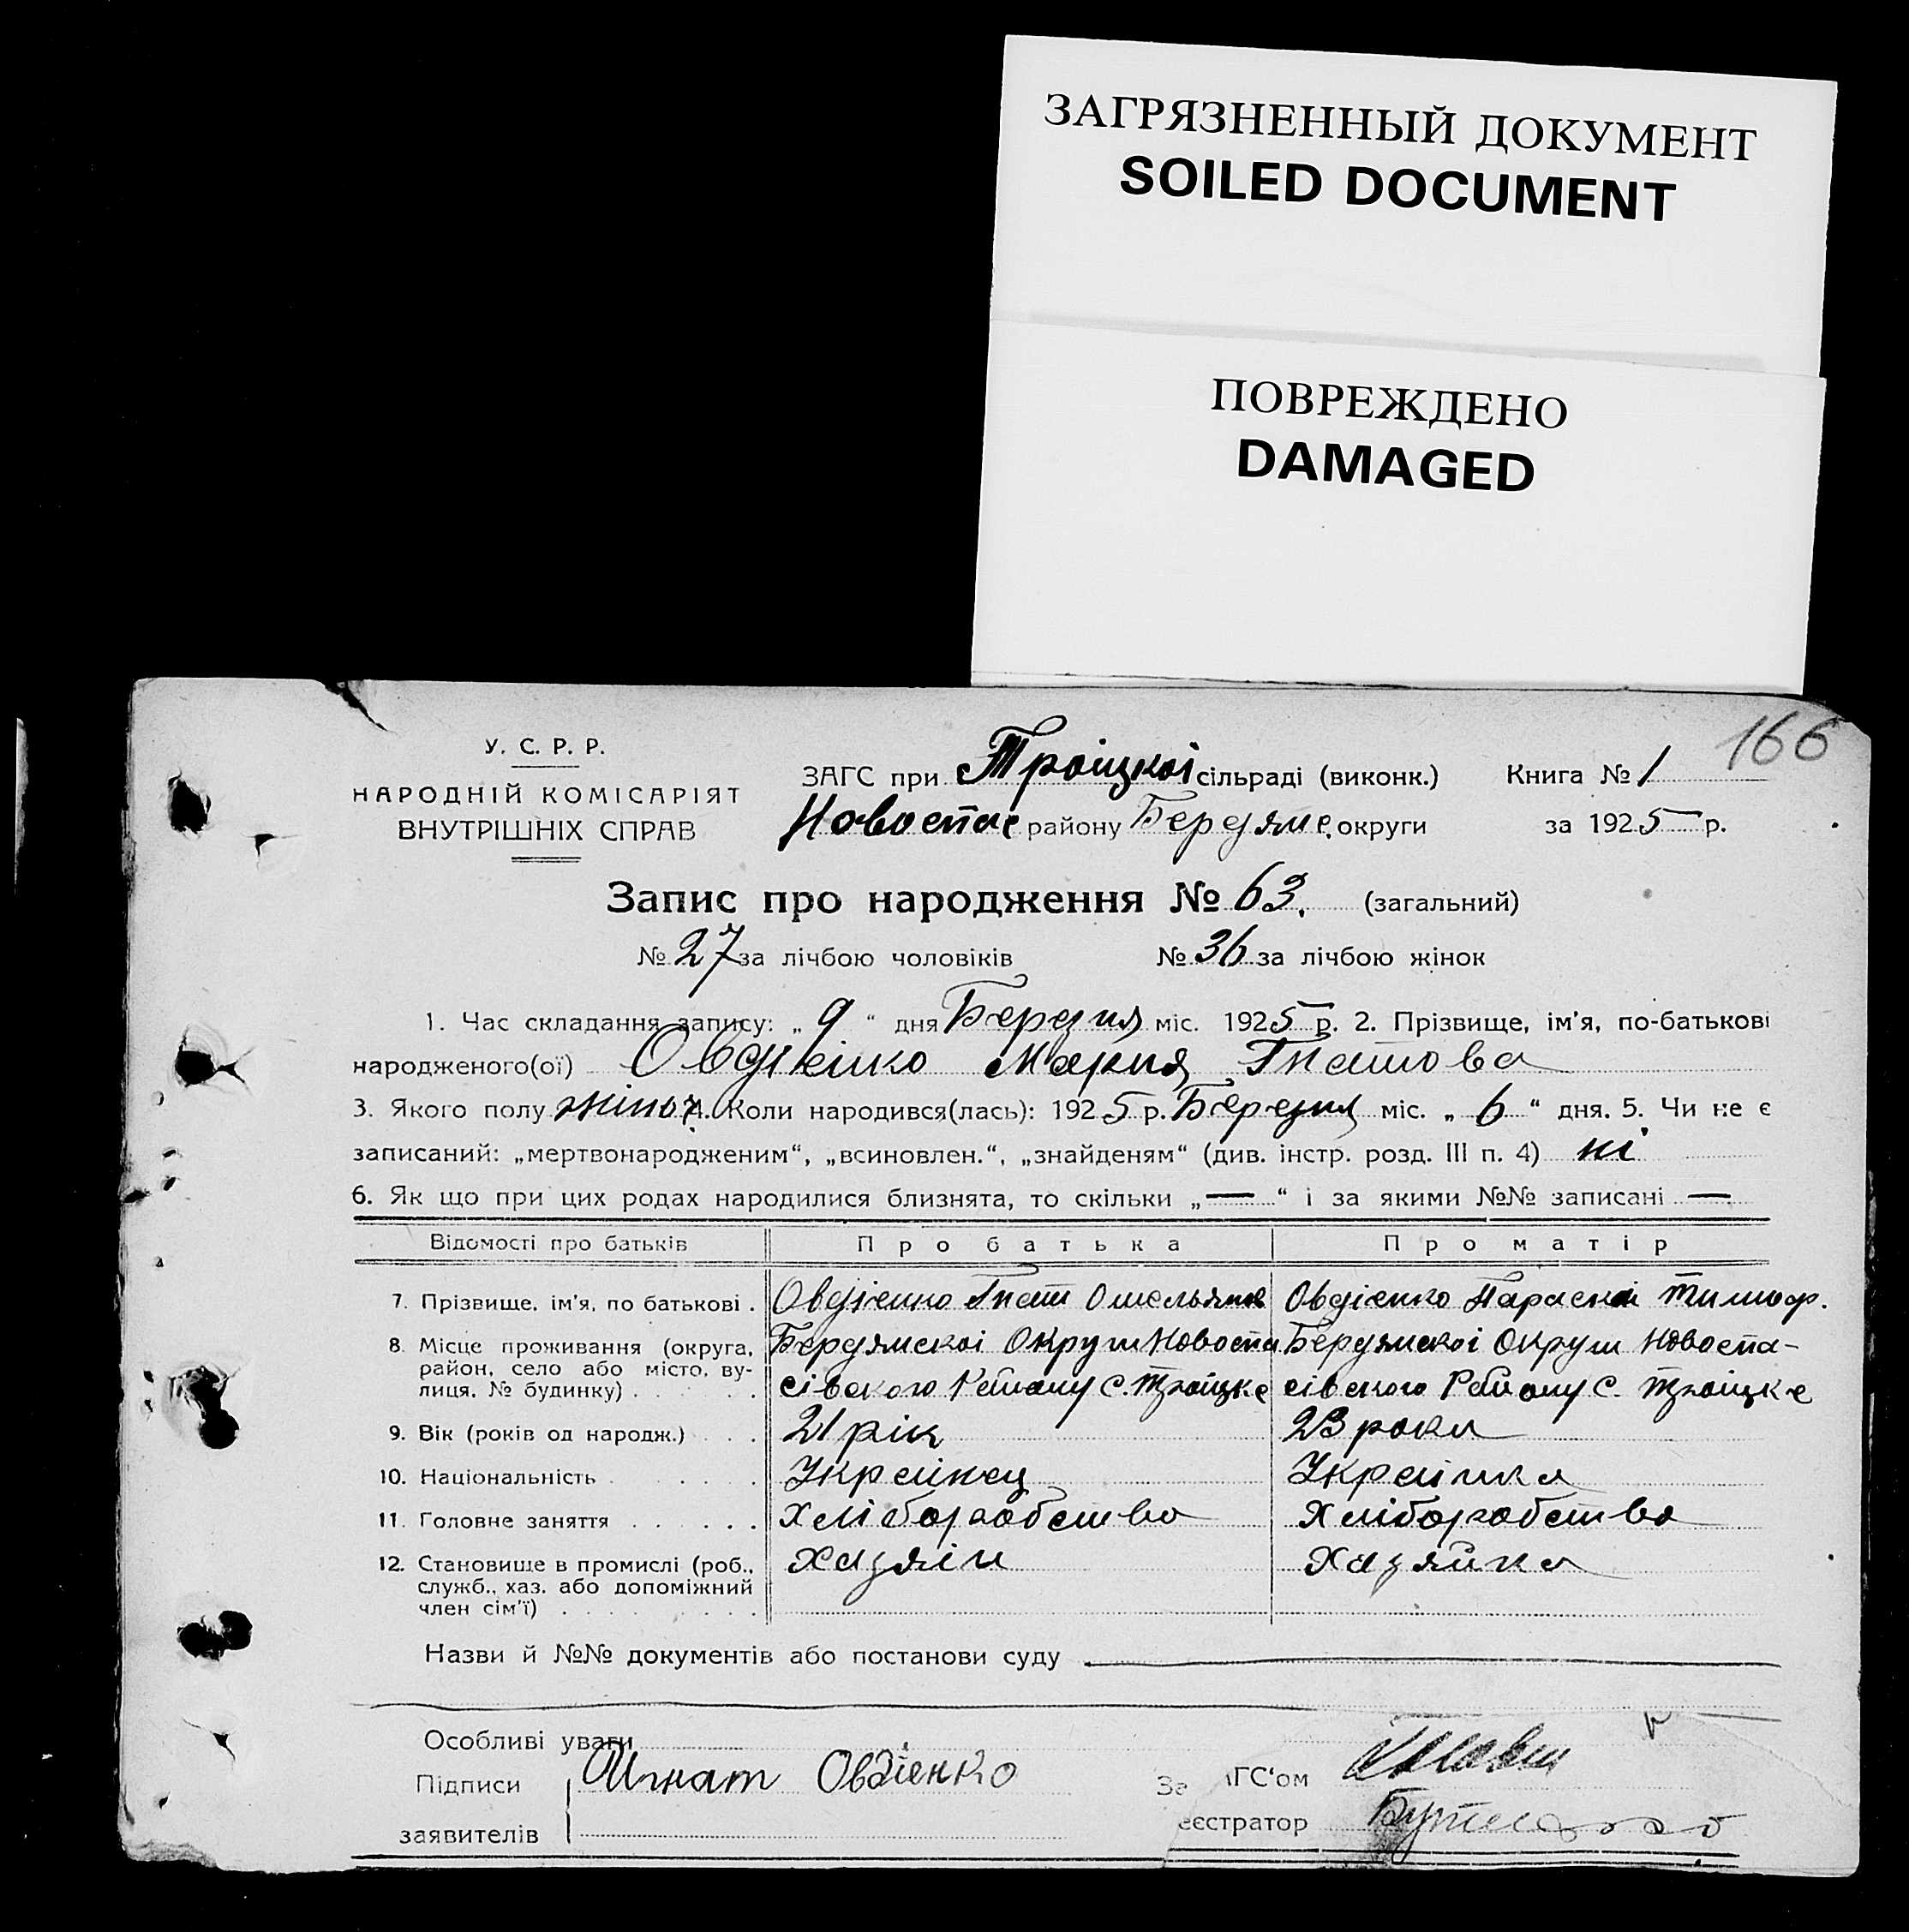 ЗАГРЯЗНЕННЫЙ ДОКУМЕНТ
SOILED DOCUMENT
ПОВРЕЖДЕНО
DAMAGED
166
У. С. Р. Р.
НАРОДНІЙ КОМІСАРІЯТ
ВНУТРІШНІХ СПРАВ
ЗАГС при Троіцкоі сільраді (виконк.) Книга № 1
Новоспас району Бердянс. округи за 1925 р.
Запис про народження № 63. (загальний)
№ 27 за лічбою чоловіків № 36 за лічбою жінок
1. Час складання запису: „ 9 “ дня Березня міс. 1925 р. 2. Прізвище, ім'я, по-батькові
народженого(ої) Овдієнко Мария Гнатова
3. Якого полу жіноч. 4. Коли народився(лась): 1925 р. Березня міс. „ 6 “ дня. 5. Чи не є
записаний: „мертвонародженим“, „всиновлен.“, „знайденям“ (див. інстр. розд. III п. 4) ні
6. Як що при цих родах народилися близнята, то скільки „ — “ і за якими №№ записані —
Відомості про батьків Про батька Про матір
7. Прізвище, ім'я, по батькові . Овдієнко Гнат Омельянов Овдієнко Параска Тимоф.
8. Місце проживання (округа, Бердянскоі Округи Новоспа Бердянскоі Округи Новоспа-
район, село або місто, ву-
лиця, № будинку) . сівского Району с. Троіцке сівского Району с. Троіцке
9. Вік (років од народж.) . . 21 рік 23 роки
10. Національність . . . . . Украінец Украінка
11. Головне заняття . . . . . . Хліборобство Хліборобство
12. Становище в промислі (роб., Хазяін Хазяйка
служб., хаз. або допоміжний
член сім'ї) . . . . . . . .
Назви й №№ документів або постанови суду
Особливі уваги
Підписи Игнат Овдіенко За АГС'ом
заявителів еєстратор